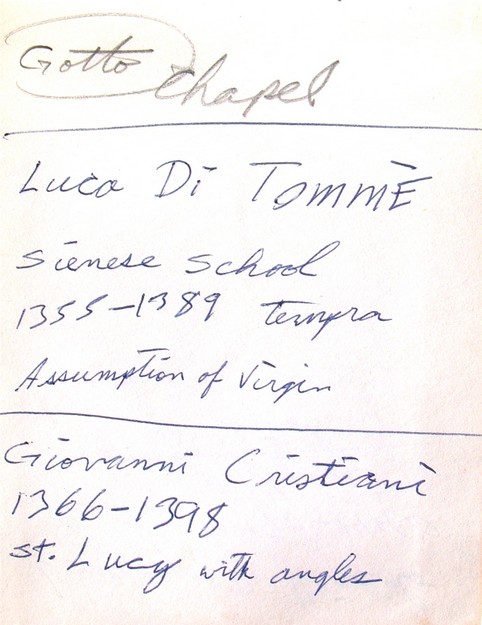 Gotto Chapel
Luca Di Tommè
Sienese School
1355-1389 tempra
Assumption of Virgin
Giovanni Cristiani
1366-1398
st. Lucy with angles